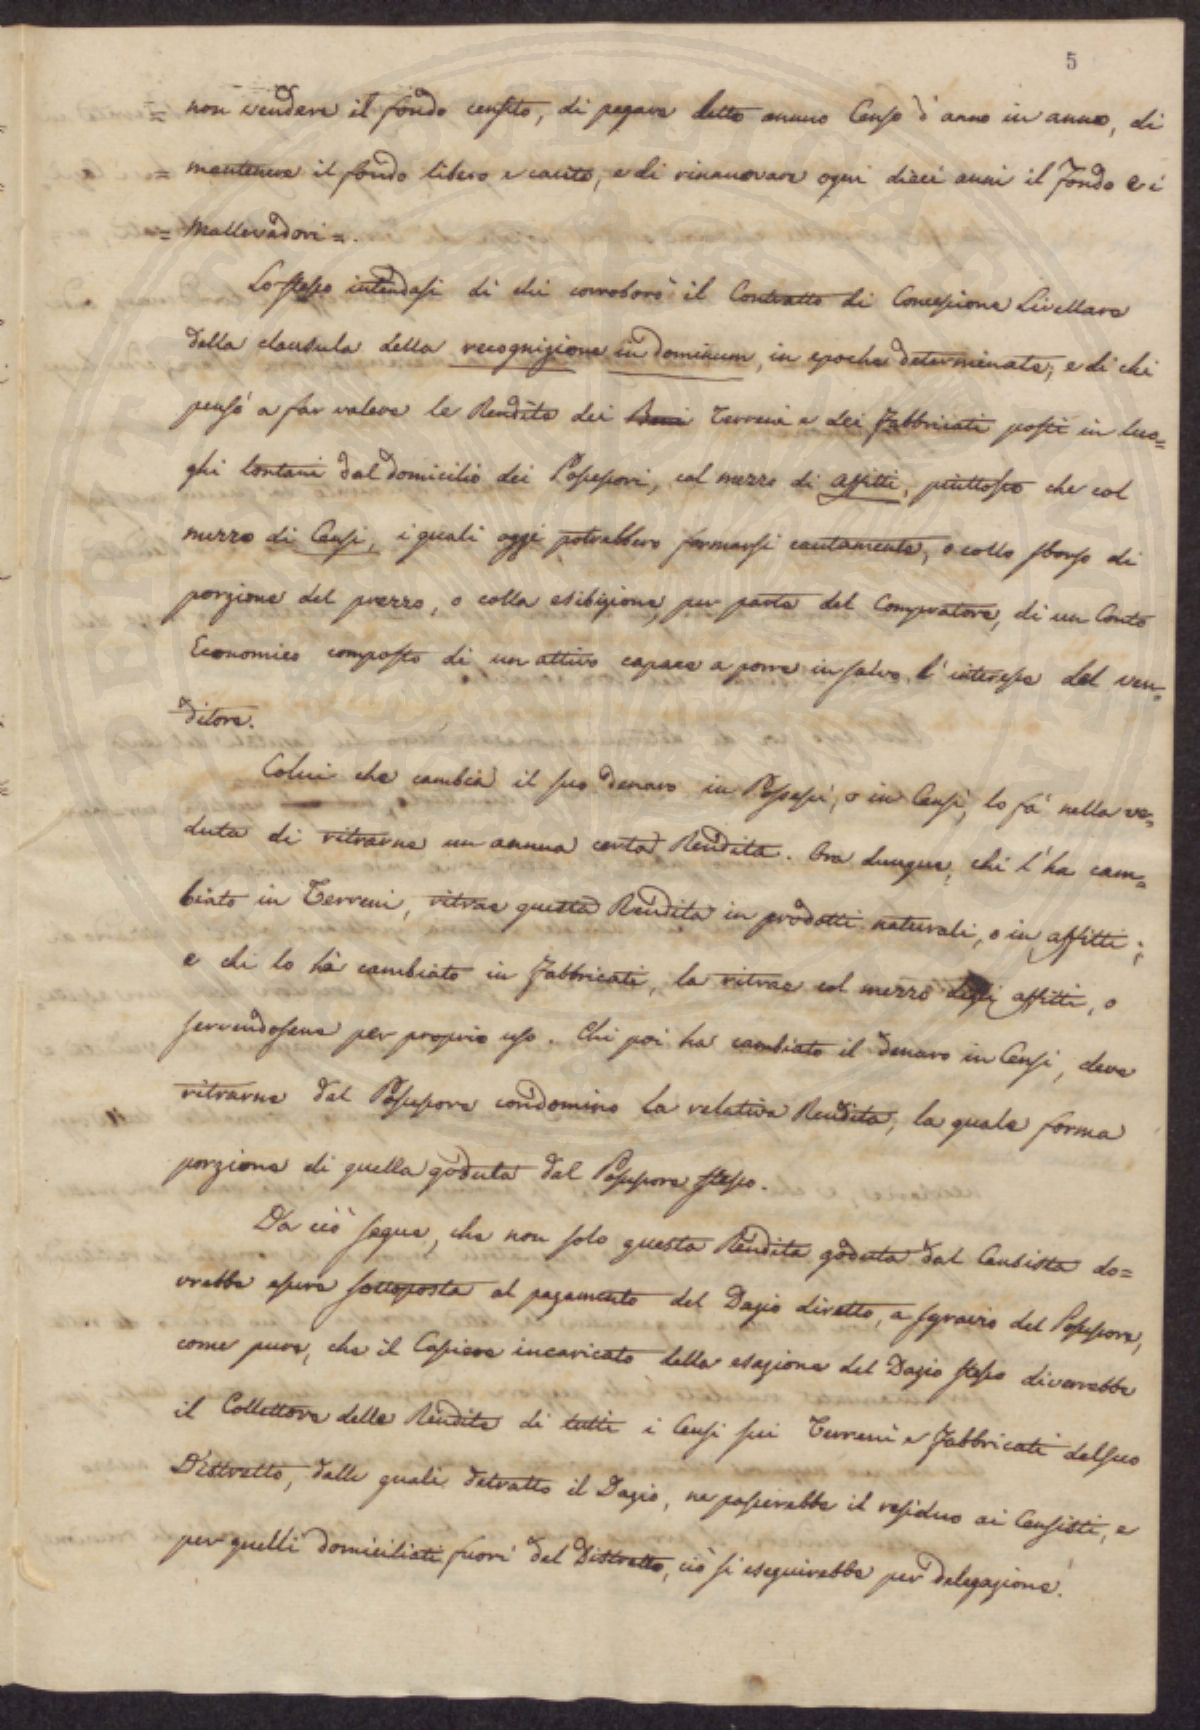 5
= non vendere il fondo censito, di pagare detto annuo Censo d'anno in anno, di
= mantenere il fondo libero e cauto, e di rinnovare ogni dieci anni il Fondo e i
= Mallevadori =.
Lo stesso intendasi di chi corroborò il Contratto di Concessione Livellare
della clausula della recognizione in dominum, in epoche determinate, e di chi
pensò a far valere le Rendite dei Beni Terreni e dei Fabbricati posti in luo=
ghi lontani dal domicilio dei Possessori, col mezzo di affitti, piuttosto che col
mezzo di Censi, i quali oggi potrebbero formarsi cautamente, o collo sborso di
porzione del prezzo, o colla esibizione, per parte del Compratore, di un Conto
Economico composto di un attivo capace a porre in salvo l'interesse del ven=
ditore.
Colui che cambia il suo denaro in Possessi, o in Censi, lo fà nella ve=
duta di ritrarne un annua certa Rendita. Ora dunque, chi l'ha cam=
biato in Terreni, ritrae questa Rendita in prodotti naturali, o in affitti;
e chi lo hà cambiato in Fabbricati, la ritrae col mezzo degli affitti, o
servendosene per proprio uso. Chi poi ha cambiato il denaro in Censi, deve
ritrarne dal Possessore condomino la relativa Rendita, la quale forma
porzione di quella goduta dal Possessore stesso.
Da ciò segue, che non solo questa Rendita goduta dal Censista do=
vrebbe essere sottoposta al pagamento del Dazio diretto, a sgravio del Possessore,
come pure, che il Cassiere incaricato della esazione del Dazio stesso diverrebbe
il Collettore delle Rendite di tutti i Censi sui Terreni e Fabbricati del suo
Distretto, dalle quali detratto il Dazio, ne passerebbe il residuo ai Censisti, e
per quelli domiciliati fuori del Distretto, ciò si eseguirebbe per delegazione.